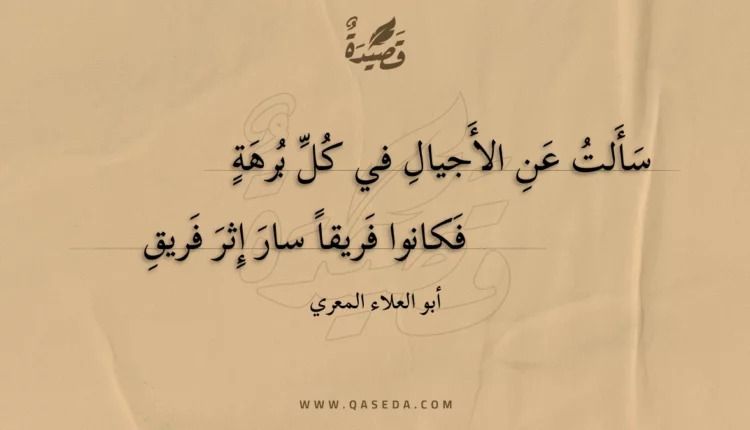 قَصِيْدَةٌ
سَأَلتُ عَنِ الأَجيالِ في كُلِّ بُرهَةٍ
فَكانوا فَريقاً سارَ إِثرَ فَريقِ
أبو العلاء المعري
WWW.QASEDA.COM